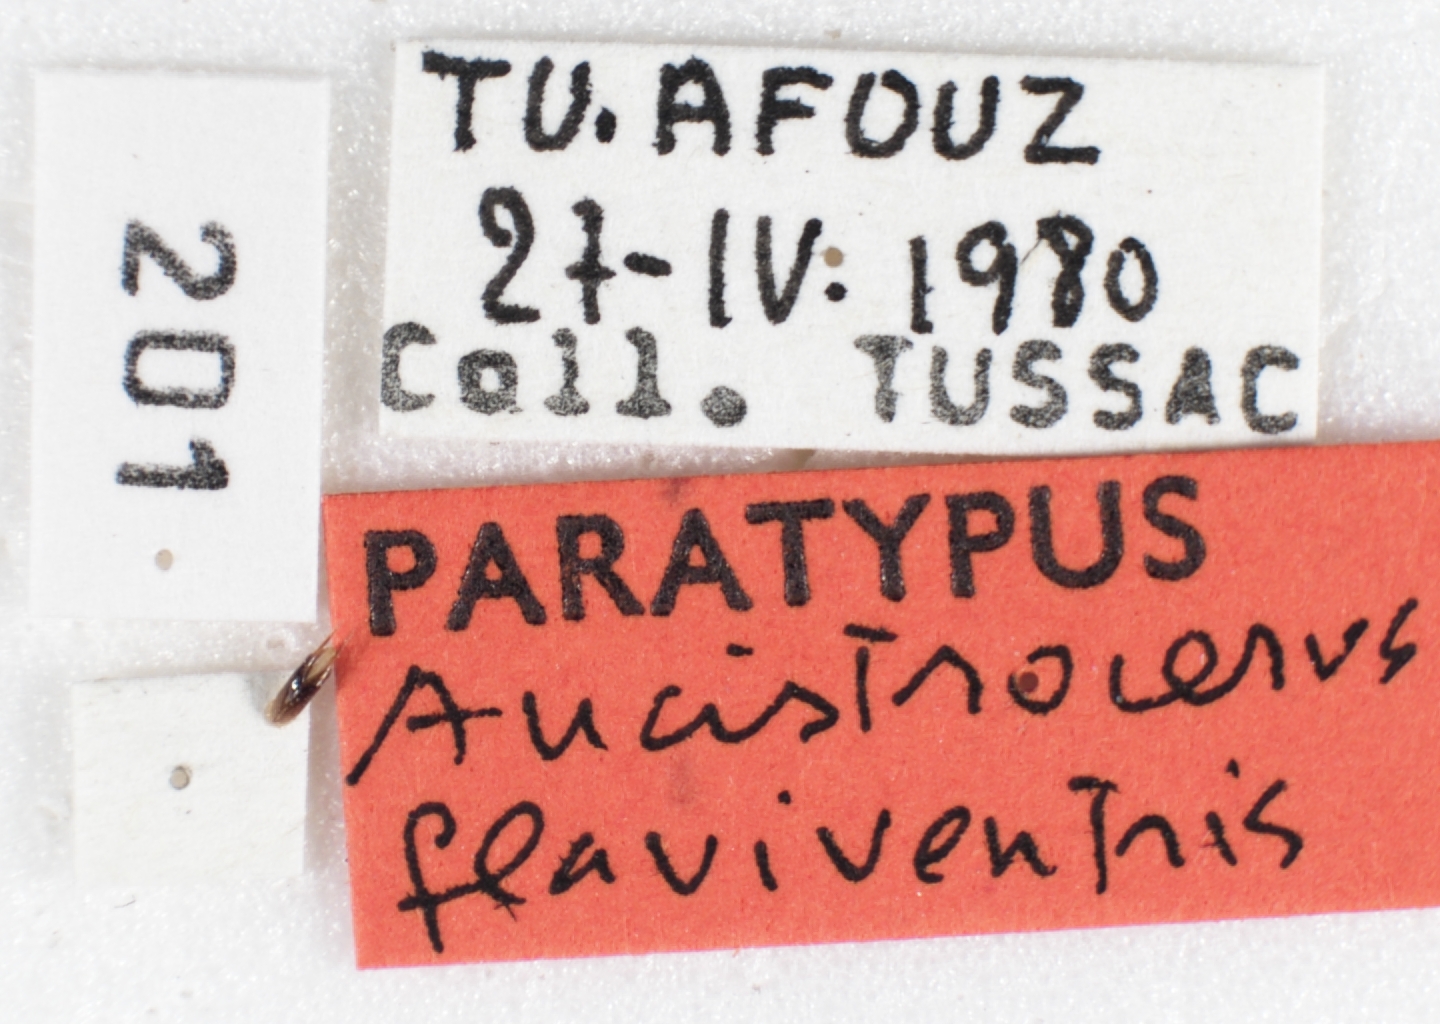 201
TU. AFOUZ
27-IV: 1980
Coll. TUSSAC
PARATYPUS
Ancistrocerus
flaviventris